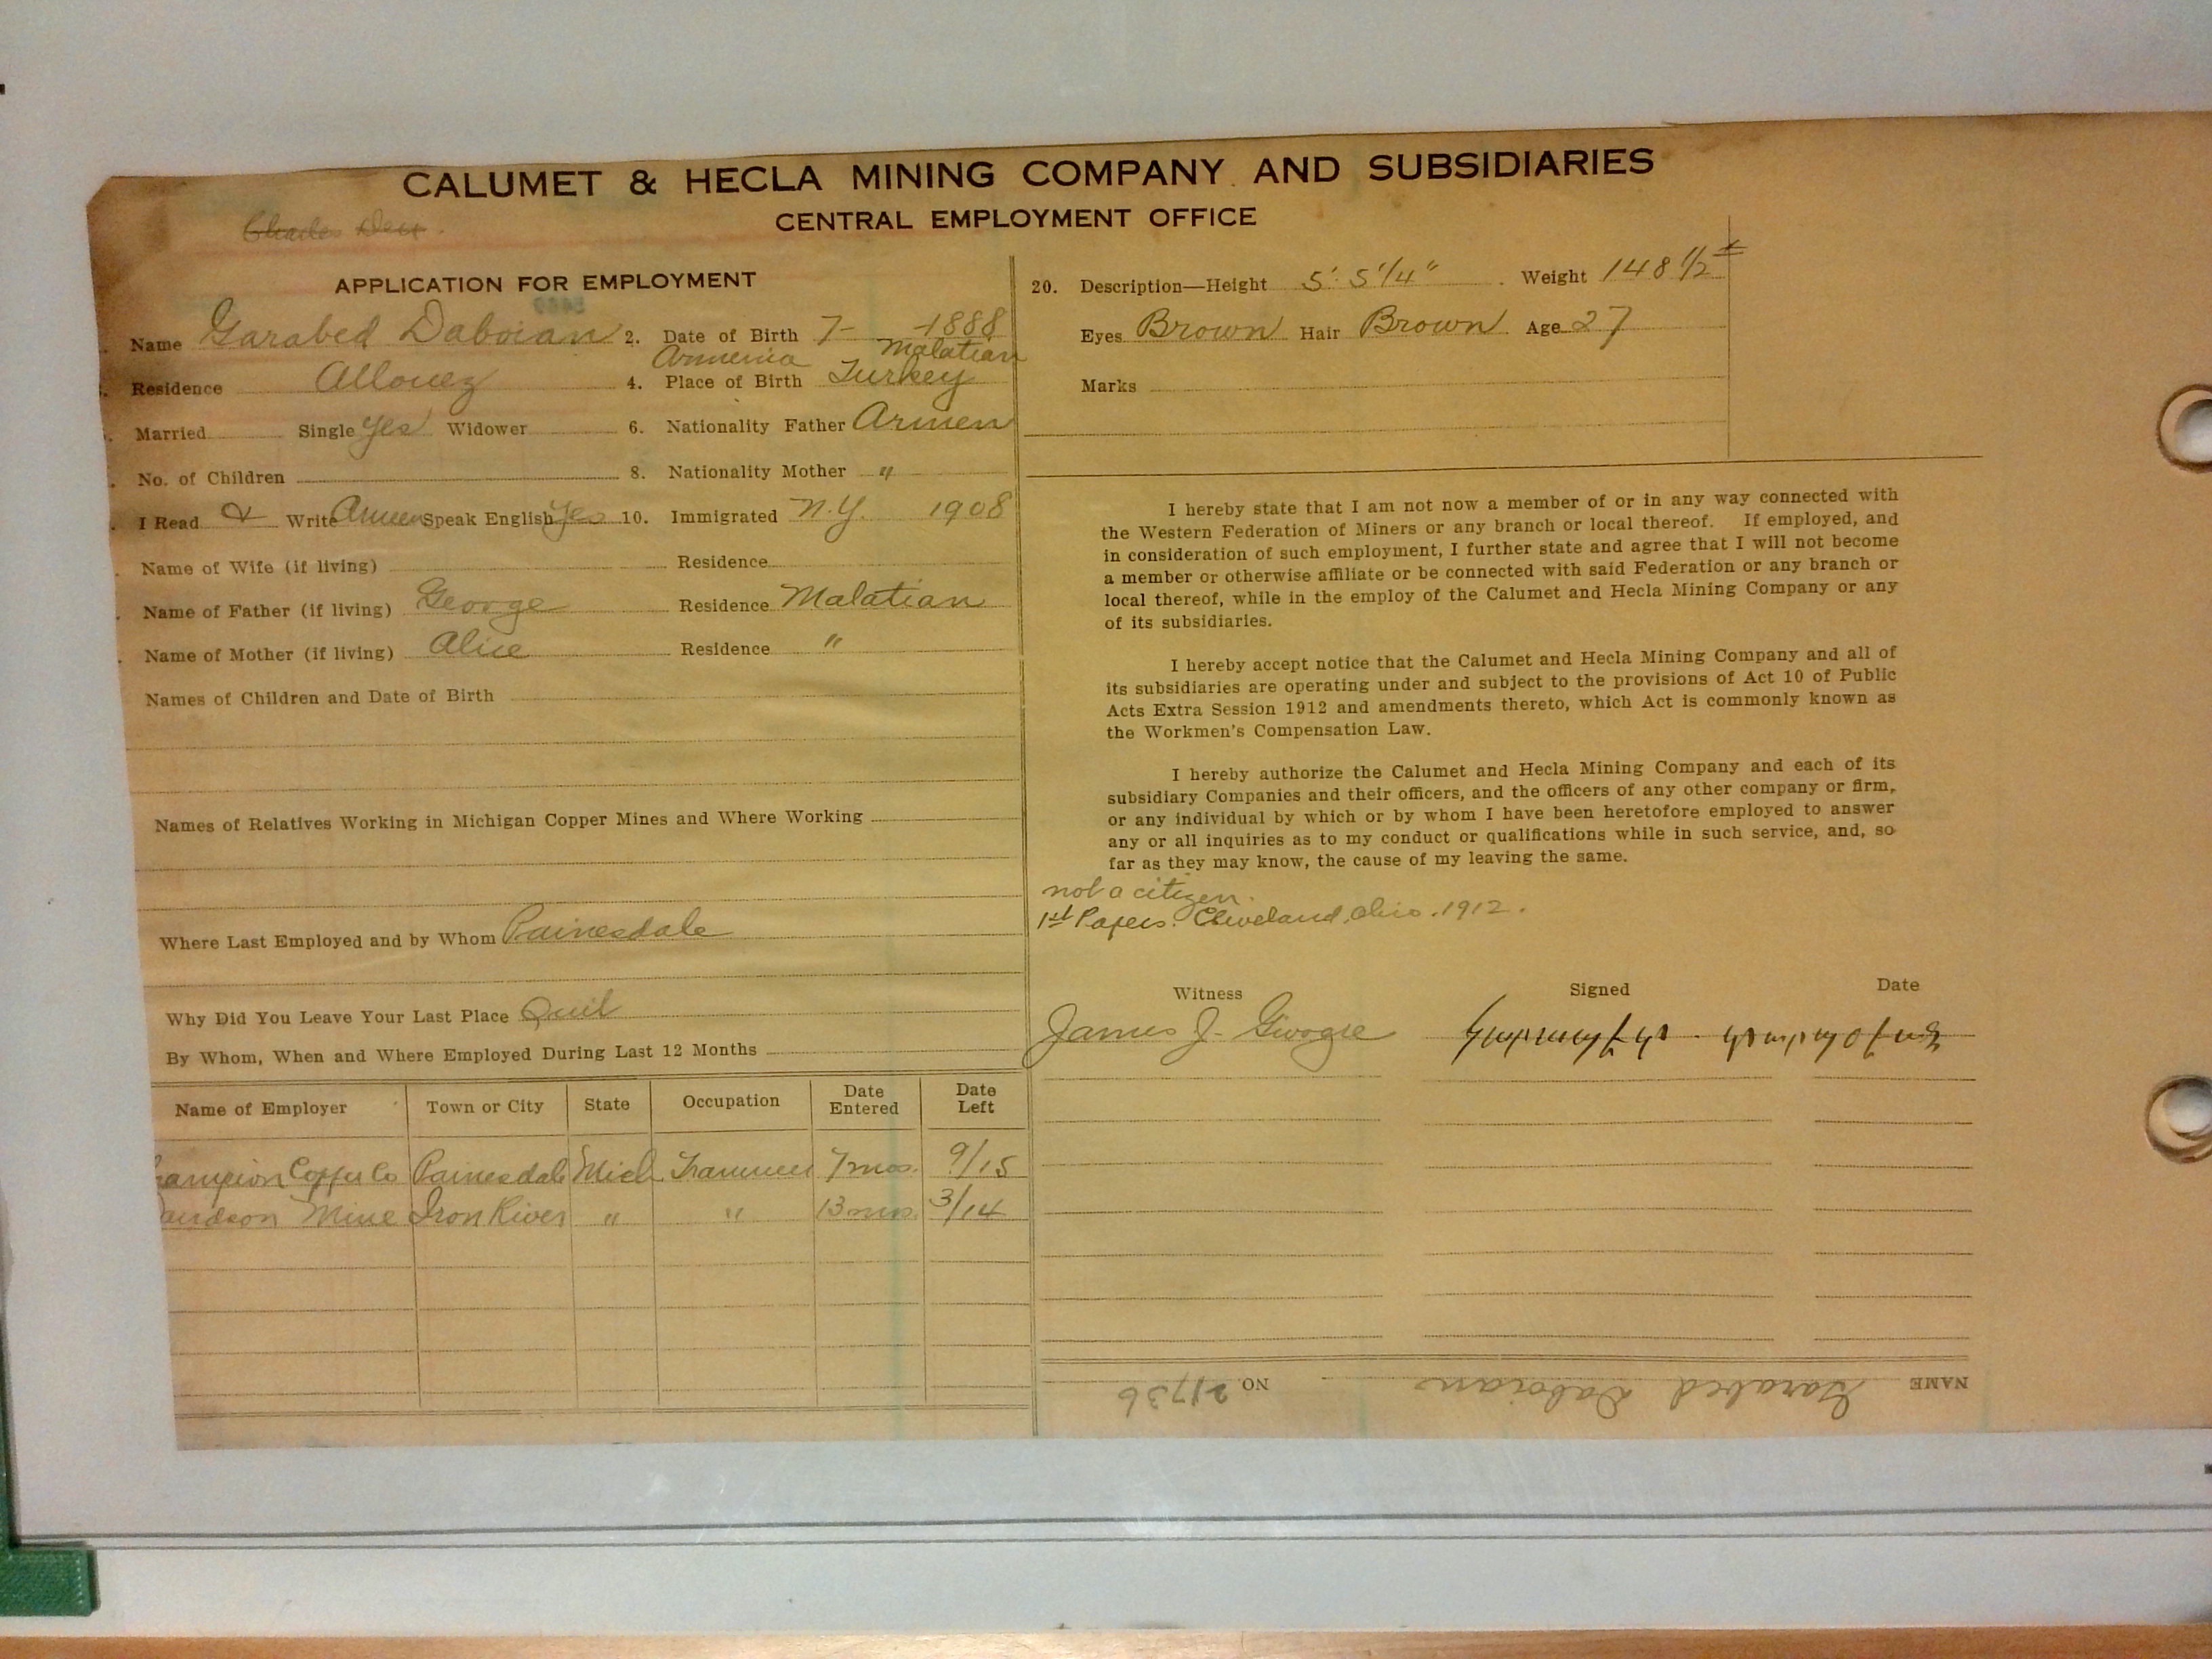 CALUMET & HECLA MINING COMPANY AND SUBSIDIARIES
CENTRAL EMPLOYMENT OFFICE
APPLICATION FOR EMPLOYMENT
Name Garabed Daboian 2. Date of Birth 7- -1888
Armenia Malatian
Residence Allouez 4. Place of Birth Turkey
Married Single Yes Widower 6. Nationality Father Armen
No. of Children 8. Nationality Mother "
I Read & Write Armen Speak English Yes 10. Immigrated N.Y. 1908
Name of Wife (if living) Residence
Name of Father (if living) George Residence Malatian
Name of Mother (if living) Alice Residence "
Names of Children and Date of Birth
Names of Relatives Working in Michigan Copper Mines and Where Working
Where Last Employed and by Whom Painesdale
Why Did You Leave Your Last Place Quit
By Whom, When and Where Employed During Last 12 Months
Name of Employer Town or City State Occupation Date Entered Date Left
hampion Copper Co Painesdale Mich Trammer 7 mos. 9/15
Mine Iron River " " 13 mos. 3/14
20. Description—Height 5' 5 1/4" Weight 148 1/2 #
Eyes Brown Hair Brown Age 27
Marks
I hereby state that I am not now a member of or in any way connected with
the Western Federation of Miners or any branch or local thereof. If employed, and
in consideration of such employment, I further state and agree that I will not become
a member or otherwise affiliate or be connected with said Federation or any branch or
local thereof, while in the employ of the Calumet and Hecla Mining Company or any
of its subsidiaries.
I hereby accept notice that the Calumet and Hecla Mining Company and all of
its subsidiaries are operating under and subject to the provisions of Act 10 of Public
Acts Extra Session 1912 and amendments thereto, which Act is commonly known as
the Workmen's Compensation Law.
I hereby authorize the Calumet and Hecla Mining Company and each of its
subsidiary Companies and their officers, and the officers of any other company or firm,
or any individual by which or by whom I have been heretofore employed to answer
any or all inquiries as to my conduct or qualifications while in such service, and, so
far as they may know, the cause of my leaving the same.
not a citizen.
1st Papers. Cleveland, Ohio. 1912.
Witness Signed Date
James J.
NAME Garabed Daboian NO. 21736